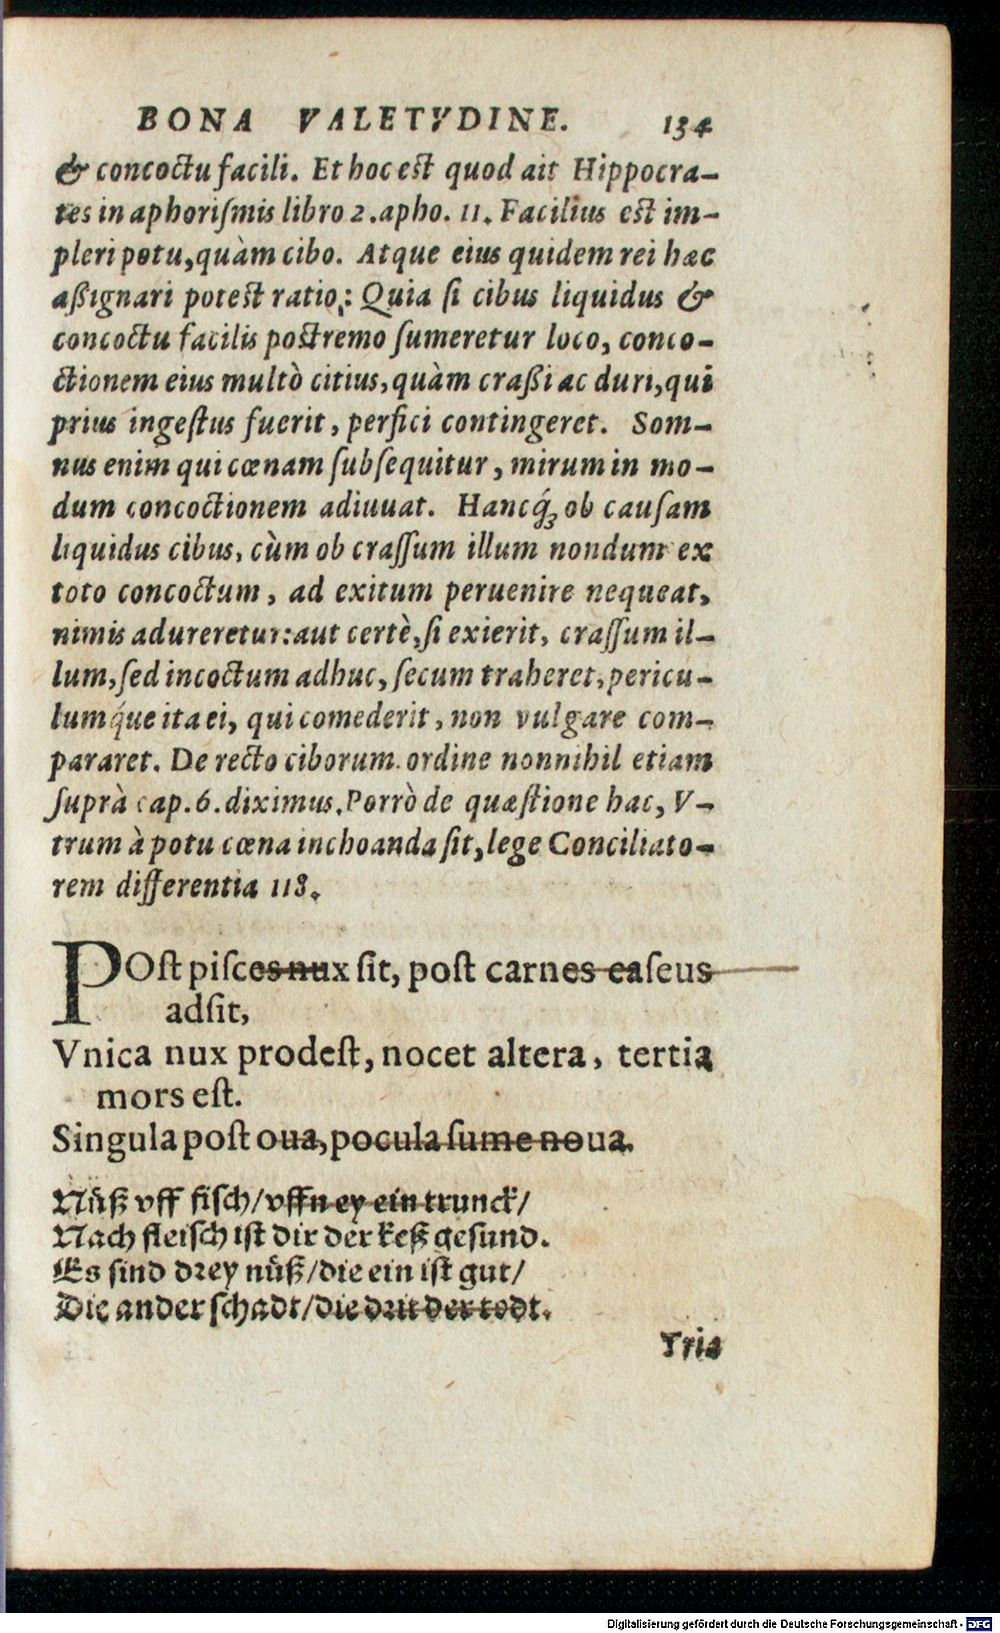 BONA VALETVDINE. 134
& concoctu facili. Et hoc est quod ait Hippocra-
tes in aphoriſmis libro 2. apho. 11. Facilius est im-
pleri potu, quàm cibo. Atque eius quidem rei hæc
aßignari potest ratio: Quia ſi cibus liquidus &
concoctu facilis postremo ſumeretur loco, conco-
ctionem eius multò citius, quàm craßi ac duri, qui
prius ingeſtus fuerit, perfici contingeret. Som-
nus enim qui cœnam ſubſequitur, mirum in mo-
dum concoctionem adiuuat. Hancq́ꝫ ob cauſam
liquidus cibus, cùm ob craſſum illum nondum ex
toto concoctum, ad exitum peruenire nequeat,
nimis adureretur: aut certè, ſi exierit, craſſum il-
lum, ſed incoctum adhuc, ſecum traheret, pericu-
lumq́ue ita ei, qui comederit, non vulgare com-
pararet. De recto ciborum ordine nonnihil etiam
ſuprà cap. 6. diximus. Porrò de quæſtione hac, V-
trum à potu cœna inchoanda ſit, lege Conciliato-
rem differentia 118.
POſt piſces nux ſit, poſt carnes caſeus
adſit,
Vnica nux prodeſt, nocet altera, tertia
mors eſt.
Singula poſt oua, pocula ſume noua.
Nüß vff fiſch/ vffn ey ein trunck/
Nach fleiſch iſt dir der keß geſund.
Es ſind drey nüß/ die ein iſt gut/
Die ander ſchadt/ die drit der todt.
Tria
Digitalisierung gefördert durch die Deutsche Forschungsgemeinschaft - DFG